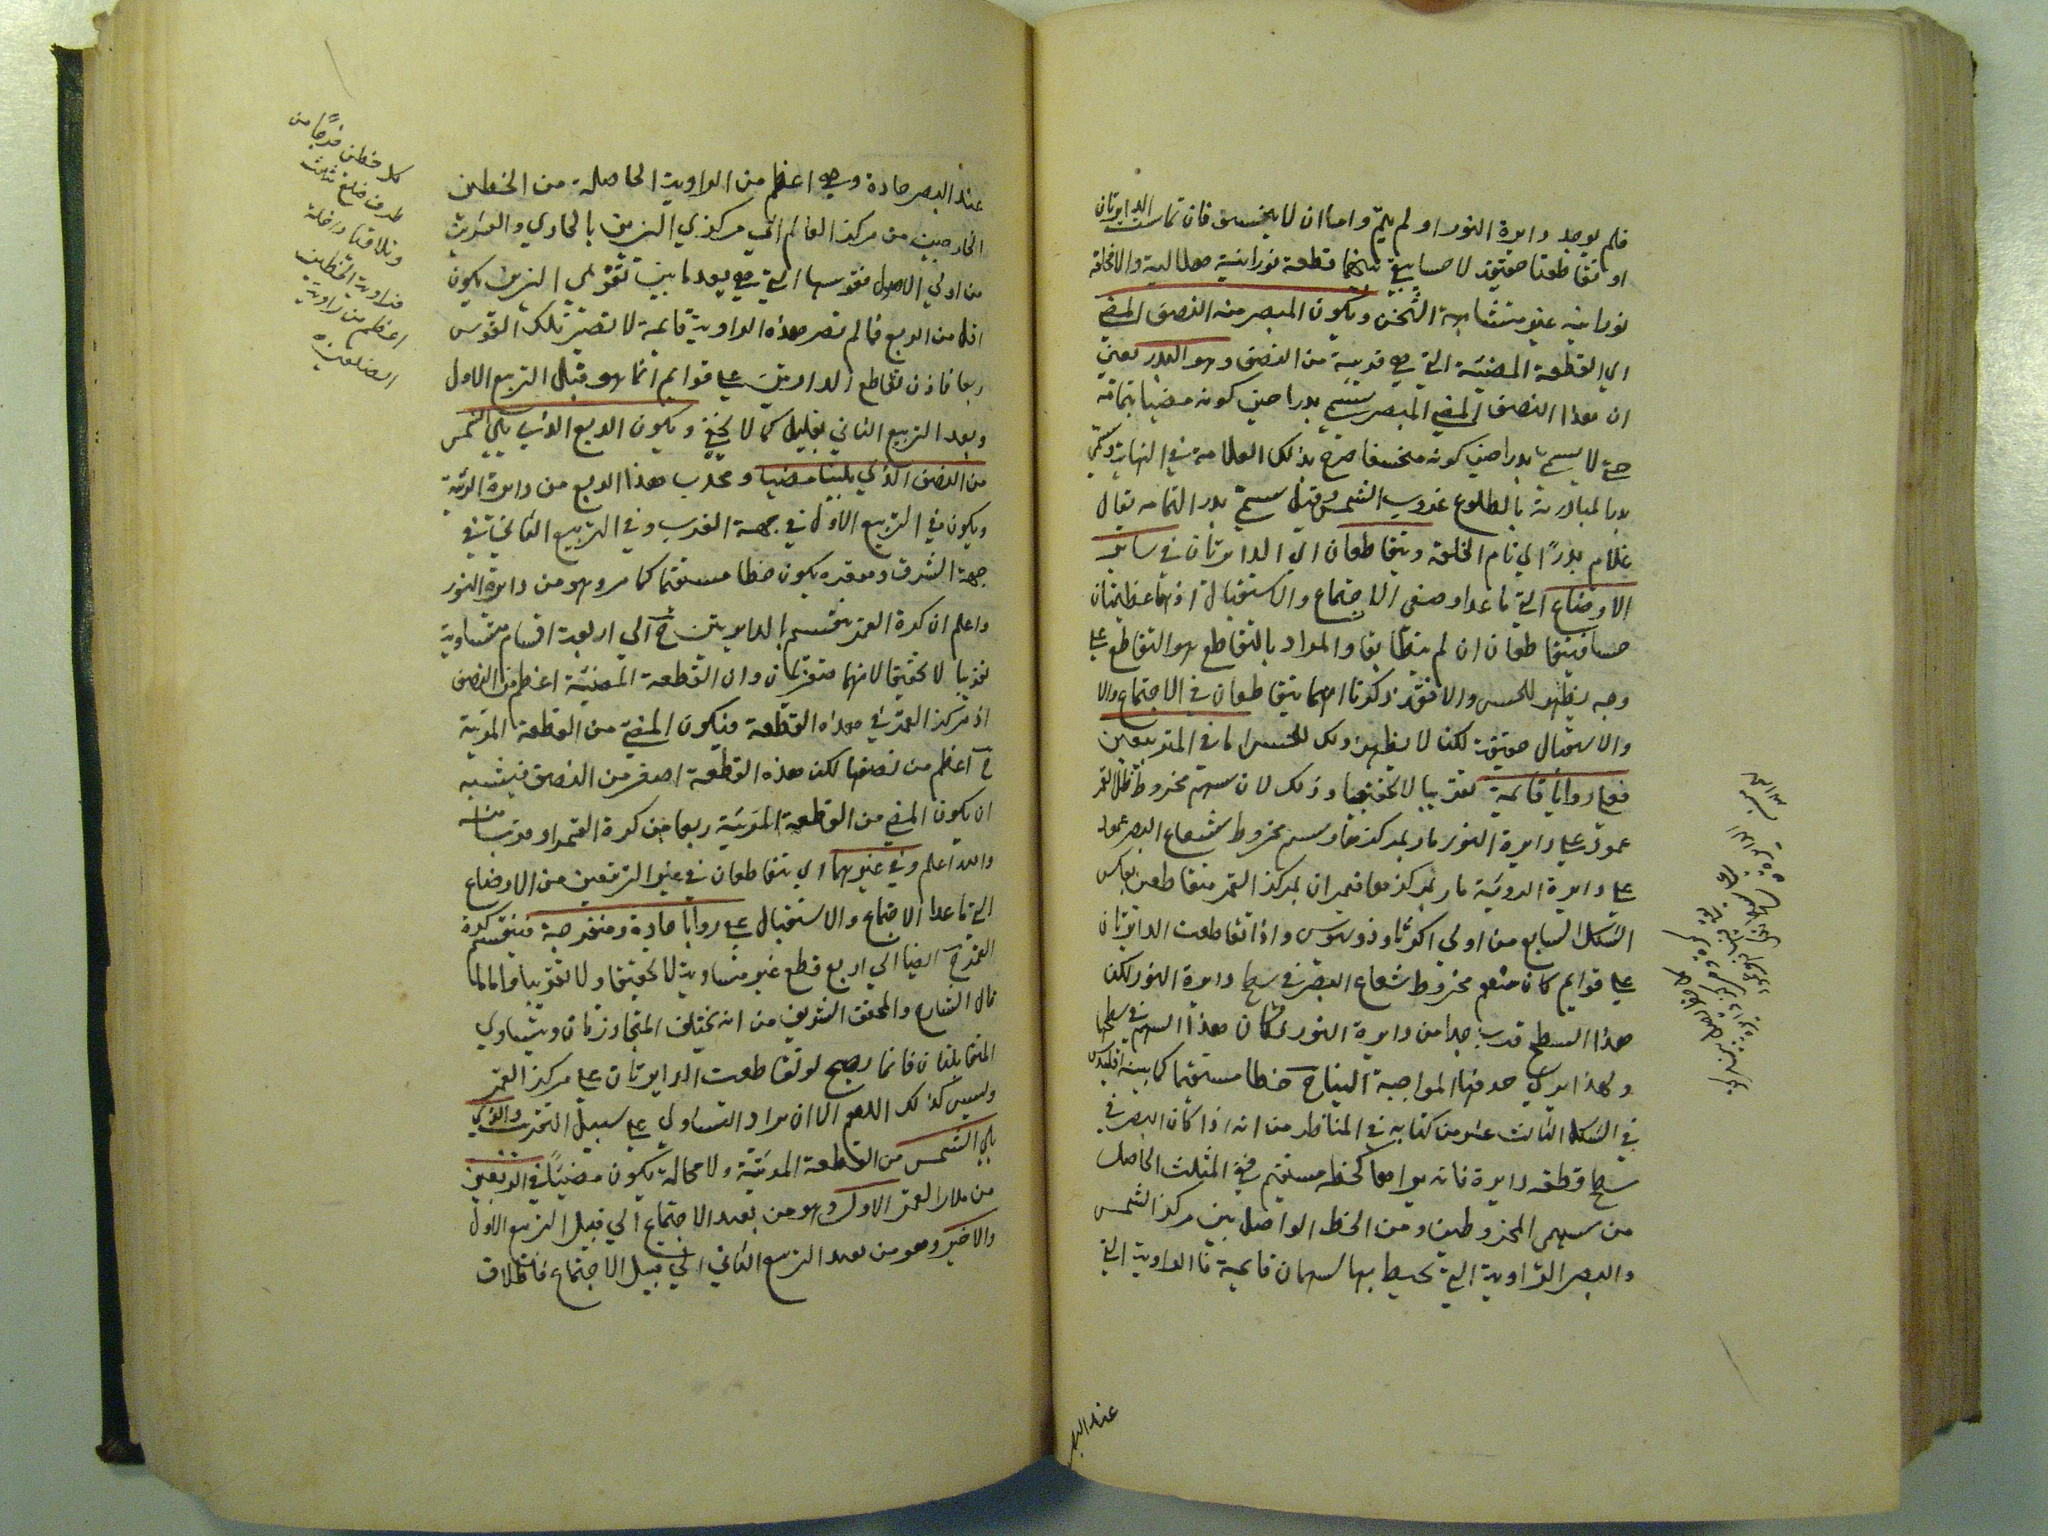 فلم يوجد دايرة النور او لم يتم واما ان لا ينخسف فان تماست الدايرتان
او تقاطعتا حقيقة لا حسا يبقى بينهما قطعة نورانية هلالية والا فحلقة
نورانية غير متشابهة الثخن ويكون المبصر منه النصف المضي
اي القطعة المضيئة التي هي قريبة من النصف وهو البدر يعني
ان هذا النصف المضي المبصر يسمى بدرا حين كونه مضيا بتمامه
حتى لا يسمى بدرا حين كونه منخسفا صرح بذلك العلامة في النهاية وسمي
به بالمبادرته بالطلوع غروب الشمس وقيل سمي بدر التمامه يقال
غلام بدرٌ اي تام الخلقة ويتقاطعان اي الدايرتان في ساير
الاوضاع التي ما عدا وضعي الاجتماع والاستقبال اذ هما عظيمتان
حسا فيتقاطعان ان لم يتطابقا والمراد بالتقاطع هو التقاطع على
وجه يظهر للحس والا فقد ذكرنا انهما يتقاطعان في الاجتماع والا
والاستقبال حقيقة لكن لا يظهر ذلك للحس اما في التربيعين
فعلى زوايا قائمة تقريبا لا تحقيقا وذلك لان سهم مخروط ظل القمر
عمود على دايرة النور مار بمركزها وسهم مخروط شعاع البصر عمود
على دايرة الروية مار بمركزها فيمران بمركز القمر متقاطعين بعكس
الشكل السابع من اولى اكر ثاوذوسيوس واذا تقاطعت الدايرتان
على قوايم كان سهم مخروط شعاع البصر في سطح دايرة النور لكن
هذا السطح قريب جدا من دايرة النور فكان هذا السهم في سطحها
ولهذا يرى حدفتها المواجهة الينا ح خطا مستقيما كما بينه اقليدس
في الشكل الثالث عشر من كتابه في المناظر من انه اذا كان البصر في
سطح قطعة دايرة فانه يراها كخط مستقيم ففي المثلث الحاصل
من سهمي المخروطين ومن الخط الواصل بين مركز الشمس
والبصر الزاوية التي تحيط بها السهمان قائمة فالزاوية التي
عند البصر
عند البصر حادة وهي اعظم من الزاوية الحاصلة من الخطين
الخارجين من مركز العالم الى مركزي النيرين بالحادي والعشرين
من اولى الاصول فقوسها التي هي بعد ما بين تقويمي النيرين يكون
اقل من الربع فما لم تصر هذه الزاوية قائمة لا تصير تلك القوس
ربعا فاذن تقاطع الدايرتين على قوايم انما هو قبل التربيع الاول
وبعد التربيع الثاني بقليل كما لا يخفى ويكون الربع الذي يلي الشمس
من النصف الذي يلينا مضيا ومحدب هذا الربع من دايرة الروية
ويكون في التربيع الاول في جهة الغرب وفي التربيع الثاني في
جهة الشرق ومقعره يكون خطا مستقيما كما مر وهو من دايرة النور
واعلم ان كرة القمر تنقسم بالدايرتين ح الى اربعة اقسام متساوية
تقريبا لا تحقيقا لانهما صغيرتان وان القطعة المضيئة اعظم من النصف
اذ مركز القمر في هذه القطعة فيكون المضي من القطعة المرئية
ح اعظم من نصفها لكن هذه القطعة اصغر من النصف فيشبه
ان يكون المضي من القطعة المرئية ربعا من كرة القمر او قريبا منه
والله اعلم وفي غيرهما اي يتقاطعان في غير التربيعين من الاوضاع
التي ما عدا الاجتماع والاستقبال على زوايا حادة ومنفرجة فينقسم كرة
القمر ح ايضا الى اربع قطع غير متساوية لا تحقيقا ولا تقريبا واما ما
قال الشارح والمحقق الشريف من انه يختلف المتجاورتان ويتساوى
المتقابلتان فانما يصح لو تقاطعت الدايرتان على مركز القمر
وليس كذلك اللهم الا ان يراد التساوي على سبيل التقريب والذي
يلي الشمس من القطعة المرئية ولا محالة يكون مضيئا في الربعين
من مدار القمر الاول وهو من بعد الاجتماع الى قبيل التربيع الاول
والاخير وهو من بعد التربيع الثاني الى قبيل الاجتماع فاطلاق
كل خطين خرجا من
طرف ضلع مثلث
وتلاقيا داخله
فزاوية الخطين
اعظم من زاوية
الضلعين